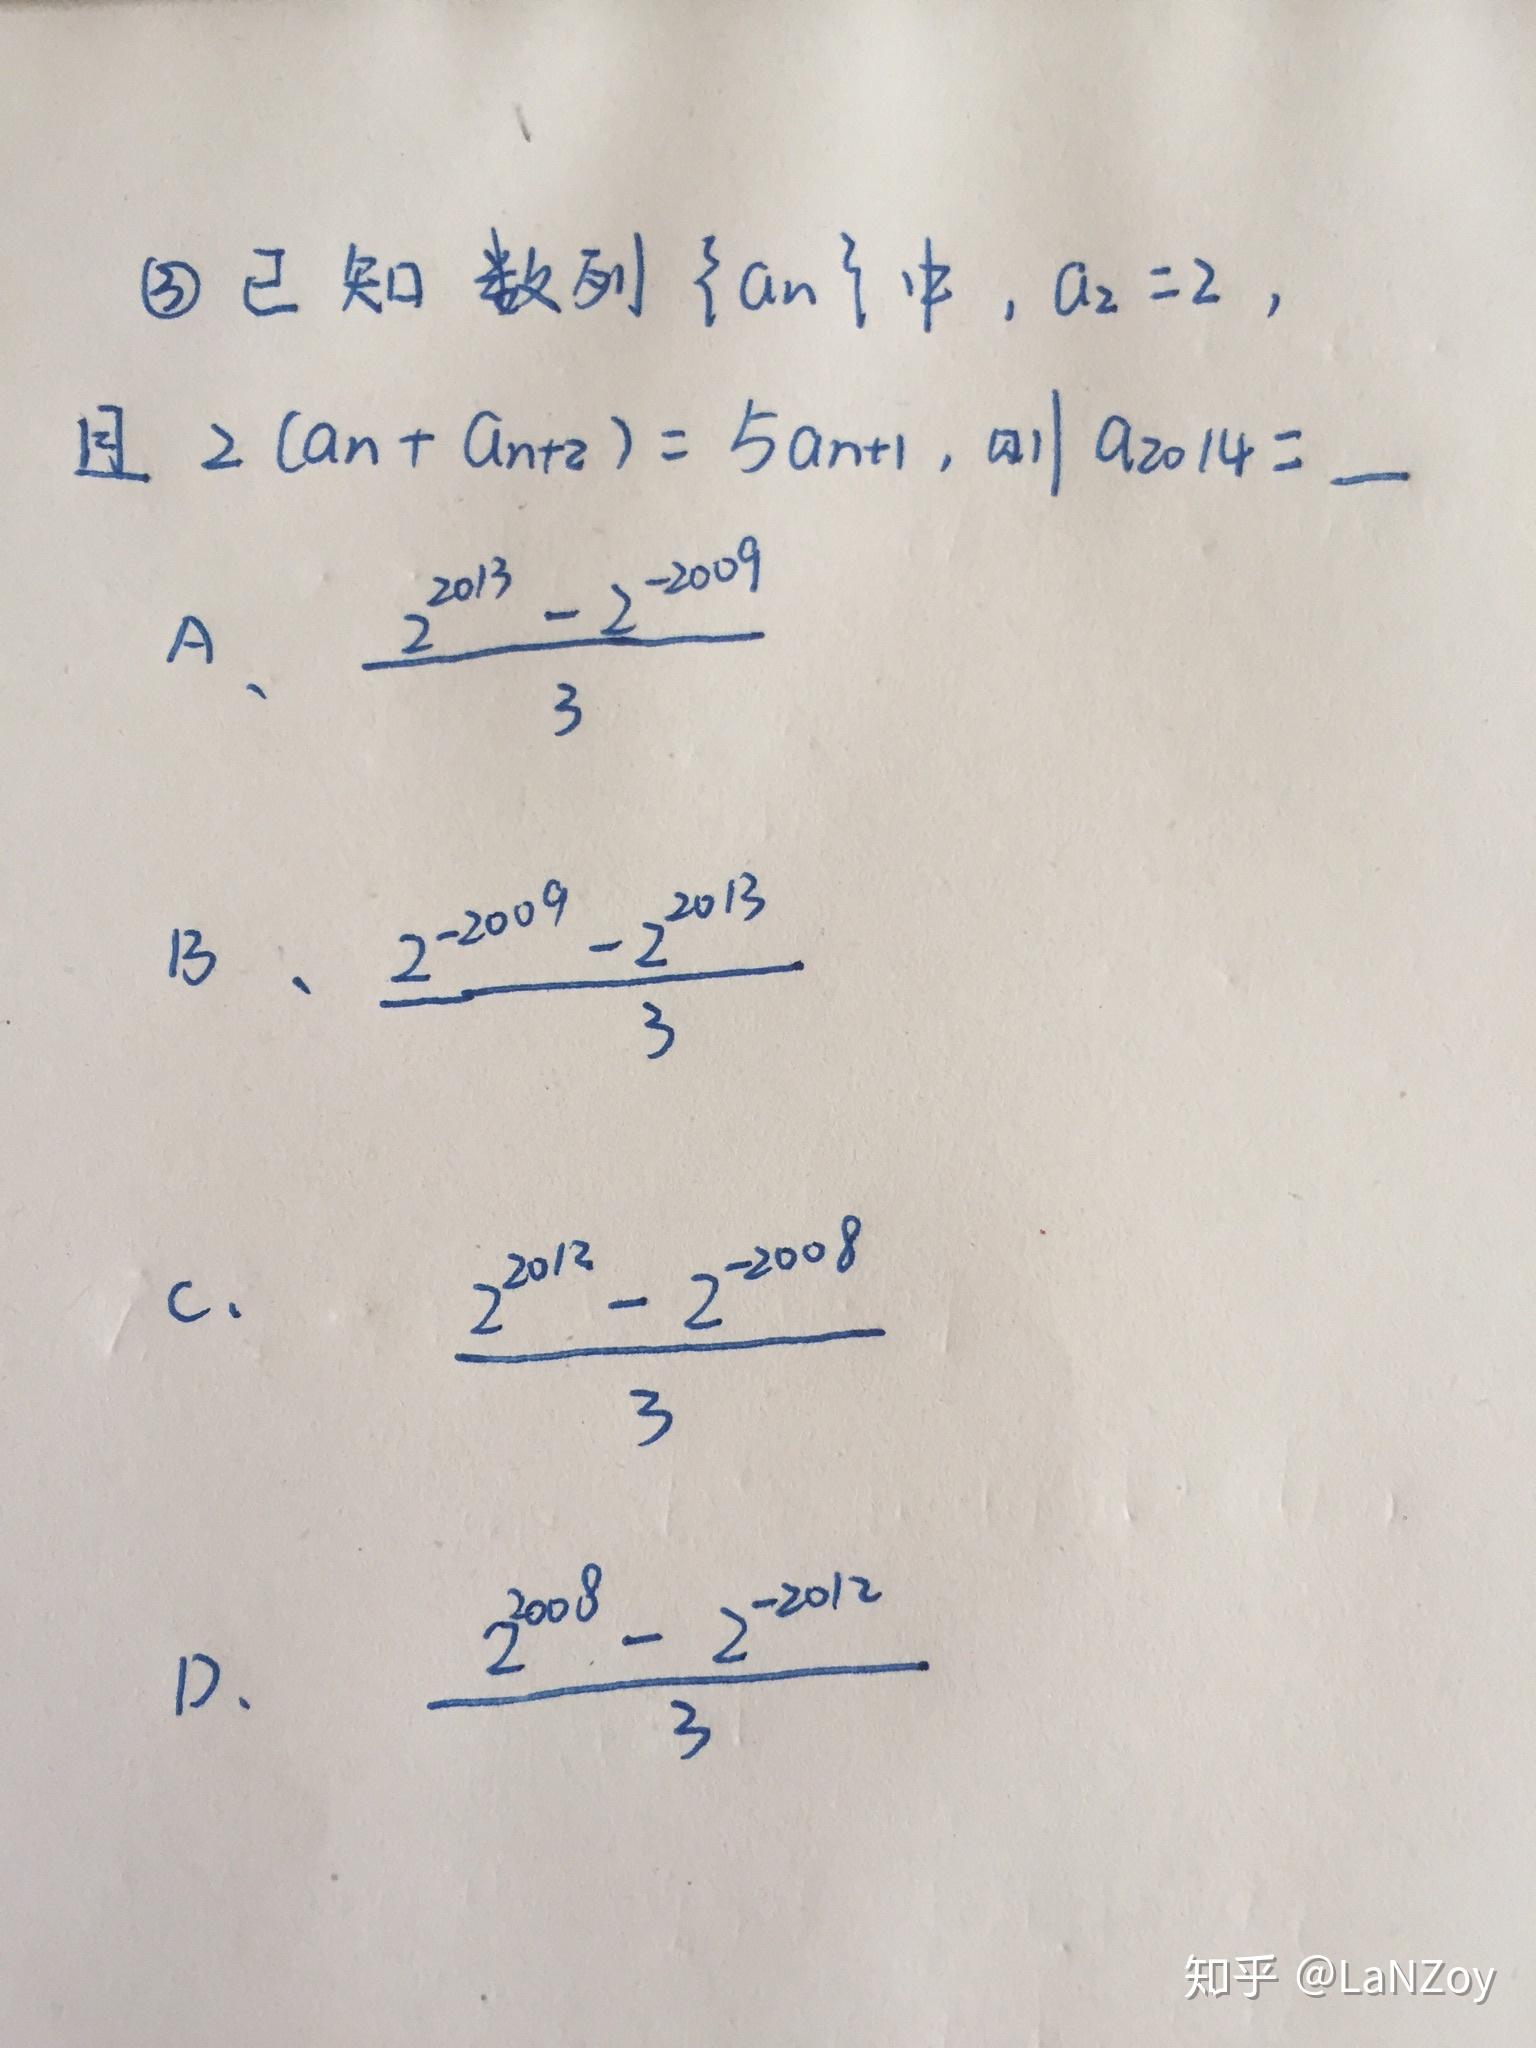 ③已知数列{aₙ}中,a₂=2,
且 2(aₙ+aₙ₊₂)=5aₙ₊₁,则a₂₀₁₄=_
A、 (2^2013 - 2^-2009)/3
B、 (2^-2009 - 2^2013)/3
C、 (2^2012 - 2^-2008)/3
D、 (2^2008 - 2^-2012)/3
知乎 @LaNZoy